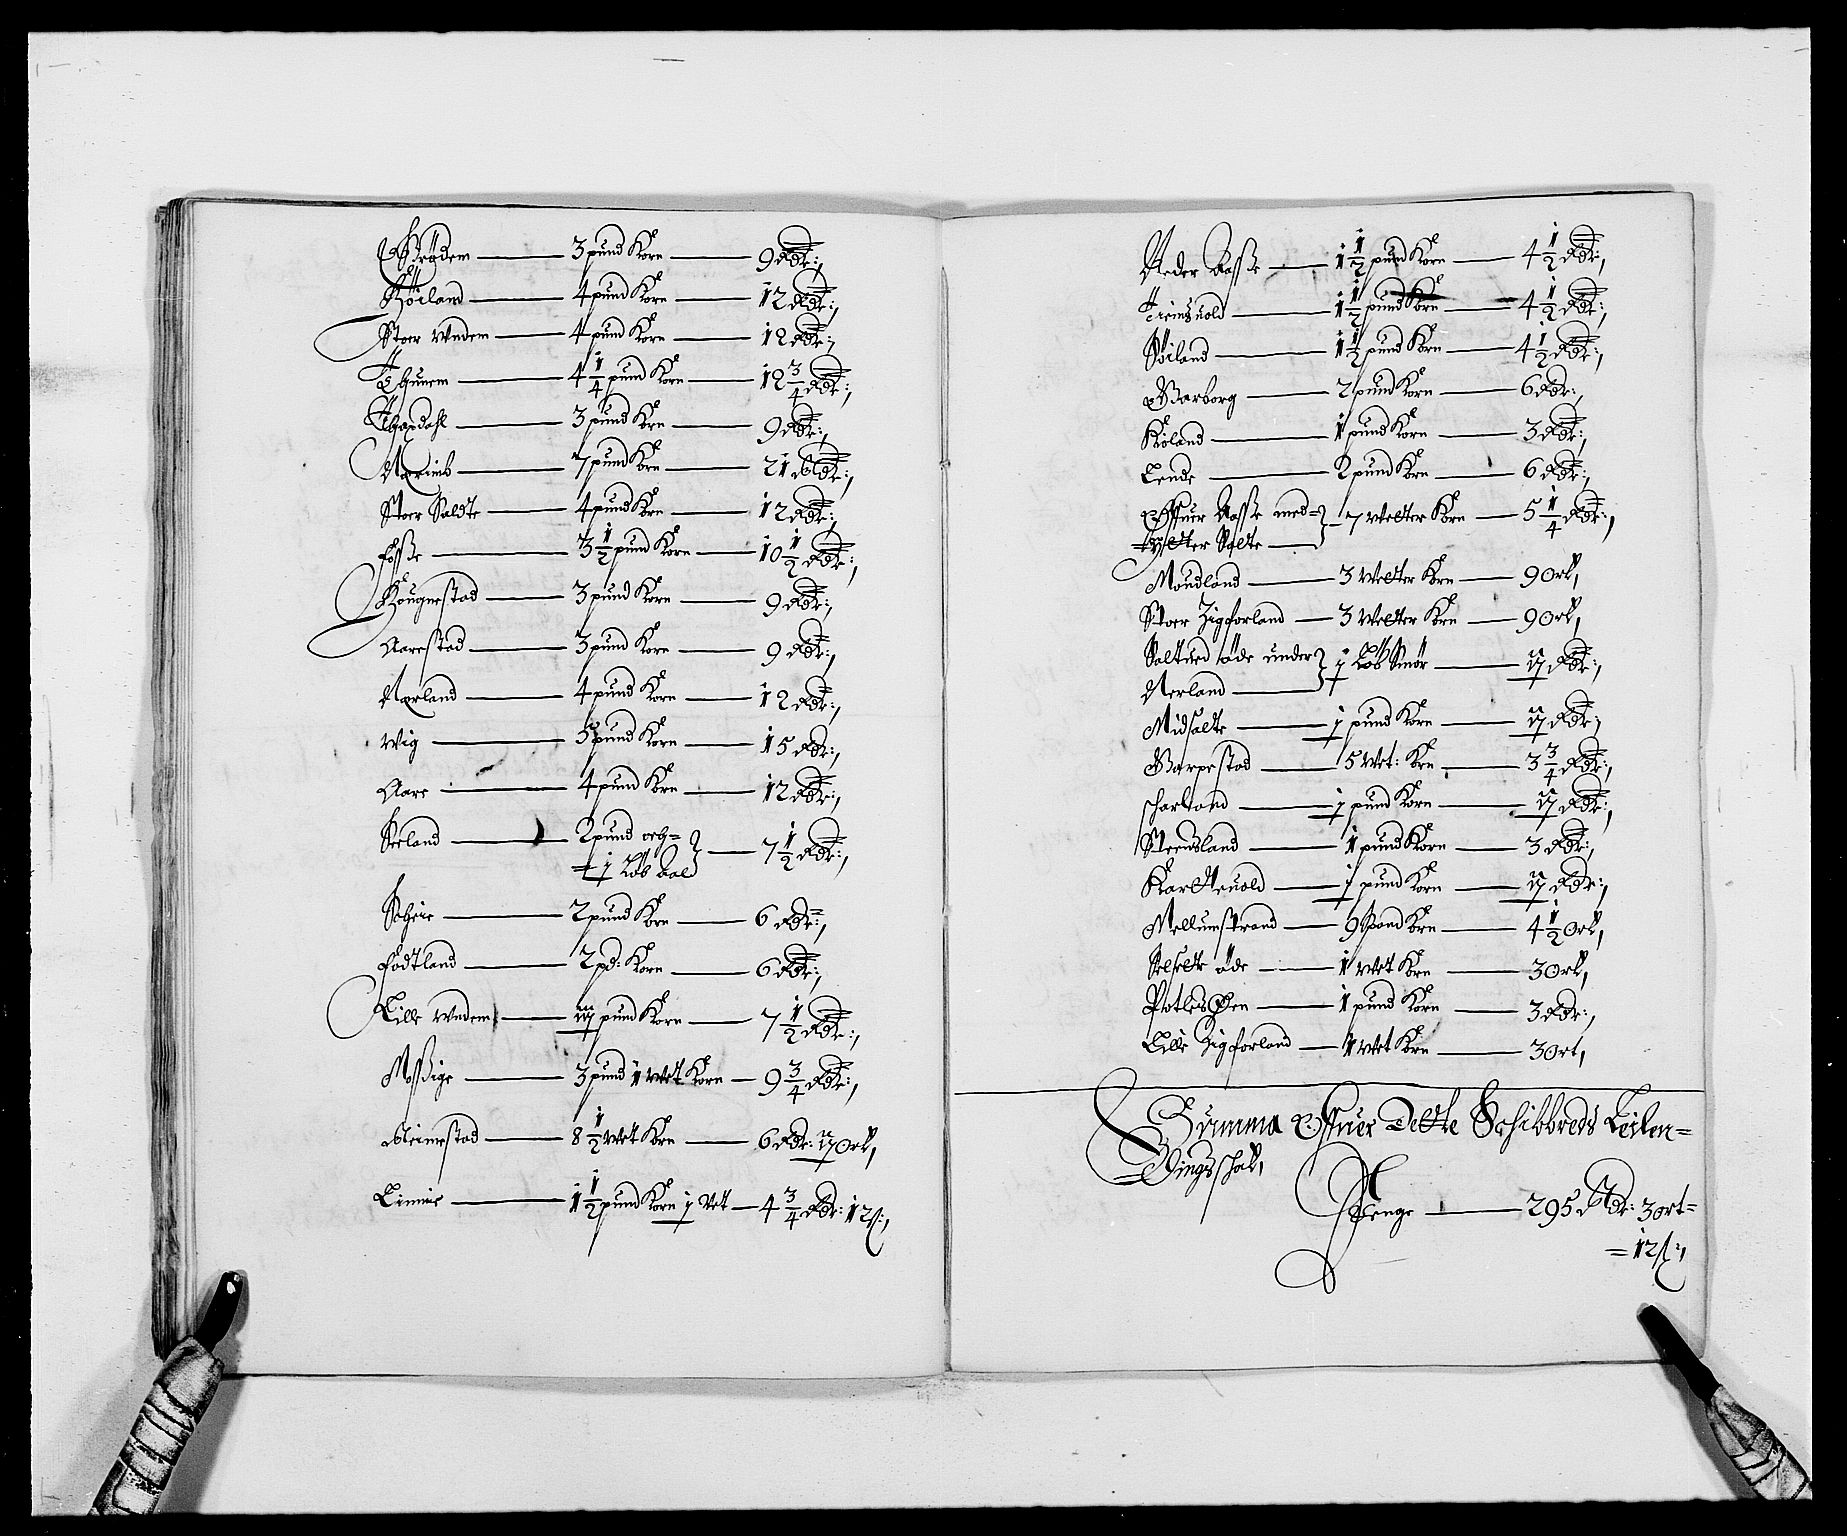 Brödem — 3 pund Korn — 9 Rdr:,
Höiland — 4 pund Korn — 12 Rdr:,
Stoer Undem — 4 pund Korn — 12 Rdr:,
Thunem — 4 1/4 pund Korn — 12 3/4 Rdr:,
— 3 pund Korn — 9 Rdr:,
Nærimb — 7 pund Korn — 21 Rdr:,
Stoer Saldte — 4 pund Korn — 12 Rdr:,
Fosße — 3 1/2 pund Korn — 10 1/2 Rdr:,
Hougnestad — 3 pund Korn — 9 Rdr:,
Aarestad — 3 pund Korn — 9 Rdr:,
Nærland — 4 pund Korn — 12 Rdr:,
Wig — 5 pund Korn — 15 Rdr:,
Aare — 4 pund Korn — 12 Rdr:,
Seeland — 2 pund och=
= 1 Løb Aald — 7 1/2 Rdr:,
Scheie — 2 pund Korn — 6 Rdr:,
Fodtland — 2 pd: Korn — 6 Rdr:,
Lille Undem — iij pund Korn — 7 1/2 Rdr:,
Mosßige — 3 pund 1 Wet Korn — 9 3/4 Rdr:,
Meinestad — 8 1/2 Wet Korn — 6 Rdr: ij Ort,
Limie — 1 1/2 pund Korn j Vet — 4 3/4 Rdr: 12 ß:,
Neder Aasße — 1 1/2 pund Korn — 4 1/2 Rdr:,
Tiemsuold — 1 1/2 pund Korn — 4 1/2 Rdr:,
Höiland — 1 1/2 pund Korn — 4 1/2 Rdr:,
Warborg — 2 pund Korn — 6 Rdr:,
Röland — 1 pund Korn — 3 Rdr:,
Lende — 2 pund Korn — 6 Rdr:,
Øffuer Aasße med=
= Ytter Salte — 7 Wetter Korn — 5 1/4 Rdr:,
Moudland — 3 Wetter Korn — 9 Ort,
Stoer Zigforland — 3 Wetter Korn — 9 Ort,
Salture øde under
Nerland — j Løb Smør — ij Rdr:,
Midsalte — j pund Korn — ij Rdr:,
Warpestad — 5 Wet: Korn — 3 3/4 Rdr:,
Scharland — j pund Korn — ij Rdr:,
Steensland — 1 pund Korn — 3 Rdr:,
— j pund Korn — ij Rdr:,
Mellumstrand — 9 Spand Korn — 4 1/2 Ort,
Selselte øde — 1 Wet Korn — 3 Ort,
— 1 pund Korn — 3 Rdr:,
Lille Zigforland — 1 Wet Korn — 3 ort,
Summa Øffuer Dette Schibbreds Leilen=
= Dings schat,
Penge — 295 Rdr: 3 ort=
= 12 ß:,